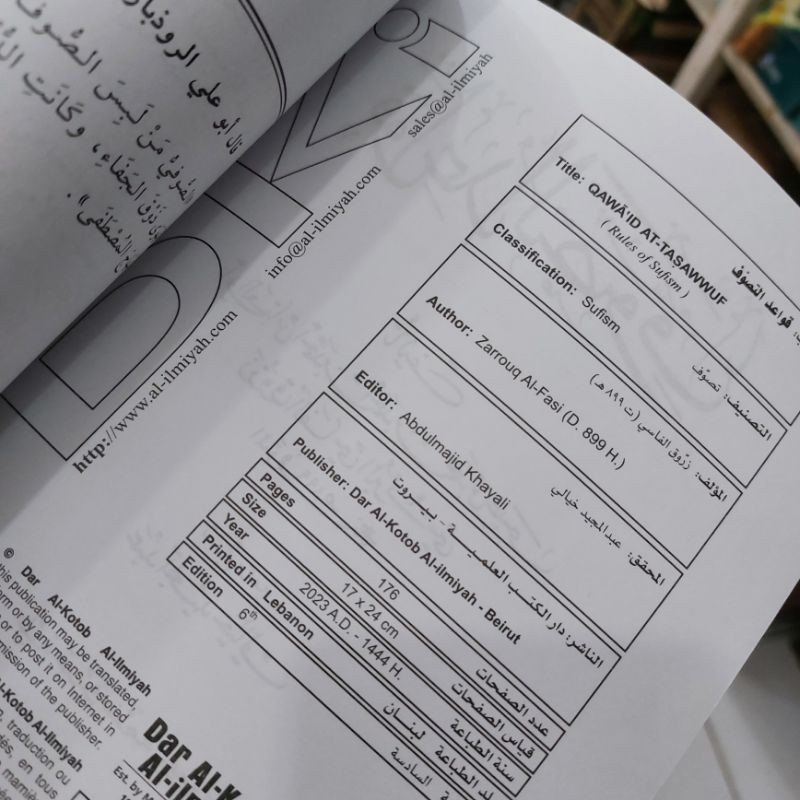 قال أبو علي الروذبار
الصُّوفِيُّ مَنْ لَبِسَ الصُّوفَ
ذَوْقَ الجَفَاءِ، وَكَانَتِ
المُصْطَفَى».
sales@al-ilmiyah
info@al-ilmiyah.com
http://www.al-ilmiyah.com
Title: QAWĀ'ID AT-TASAWWUF
قواعد التصوّف
( Rules of Sufism )
Classification: Sufism
التصنيف: تصوّف
Author: Zarrouq Al-Fasi (D. 899 H.)
المؤلف: زرّوق الفاسي (ت ٨٩٩ هـ)
Editor: Abdulmajid Khayali
المحقق: عبد المجيد خيالي
Publisher: Dar Al-Kotob Al-ilmiyah - Beirut
الناشر: دار الكتب العلميـة - بيروت
Pages 176 عدد الصفحات
Size 17 x 24 cm قياس الصفحات
Year 2023 A.D. - 1444 H. سنة الطباعة
Printed in Lebanon لد الطباعة لبنـان
Edition 6th السادسة
© Dar Al-Kotob Al-Ilmiyah
this publication may be translated,
orm or by any means, or stored
or to post it on Internet in
mission of the publisher.
l-Kotob Al-Ilmiyah
traduction ou
dés, en tous
manièr
Dar Al-K
Al-ilm
Est. by M